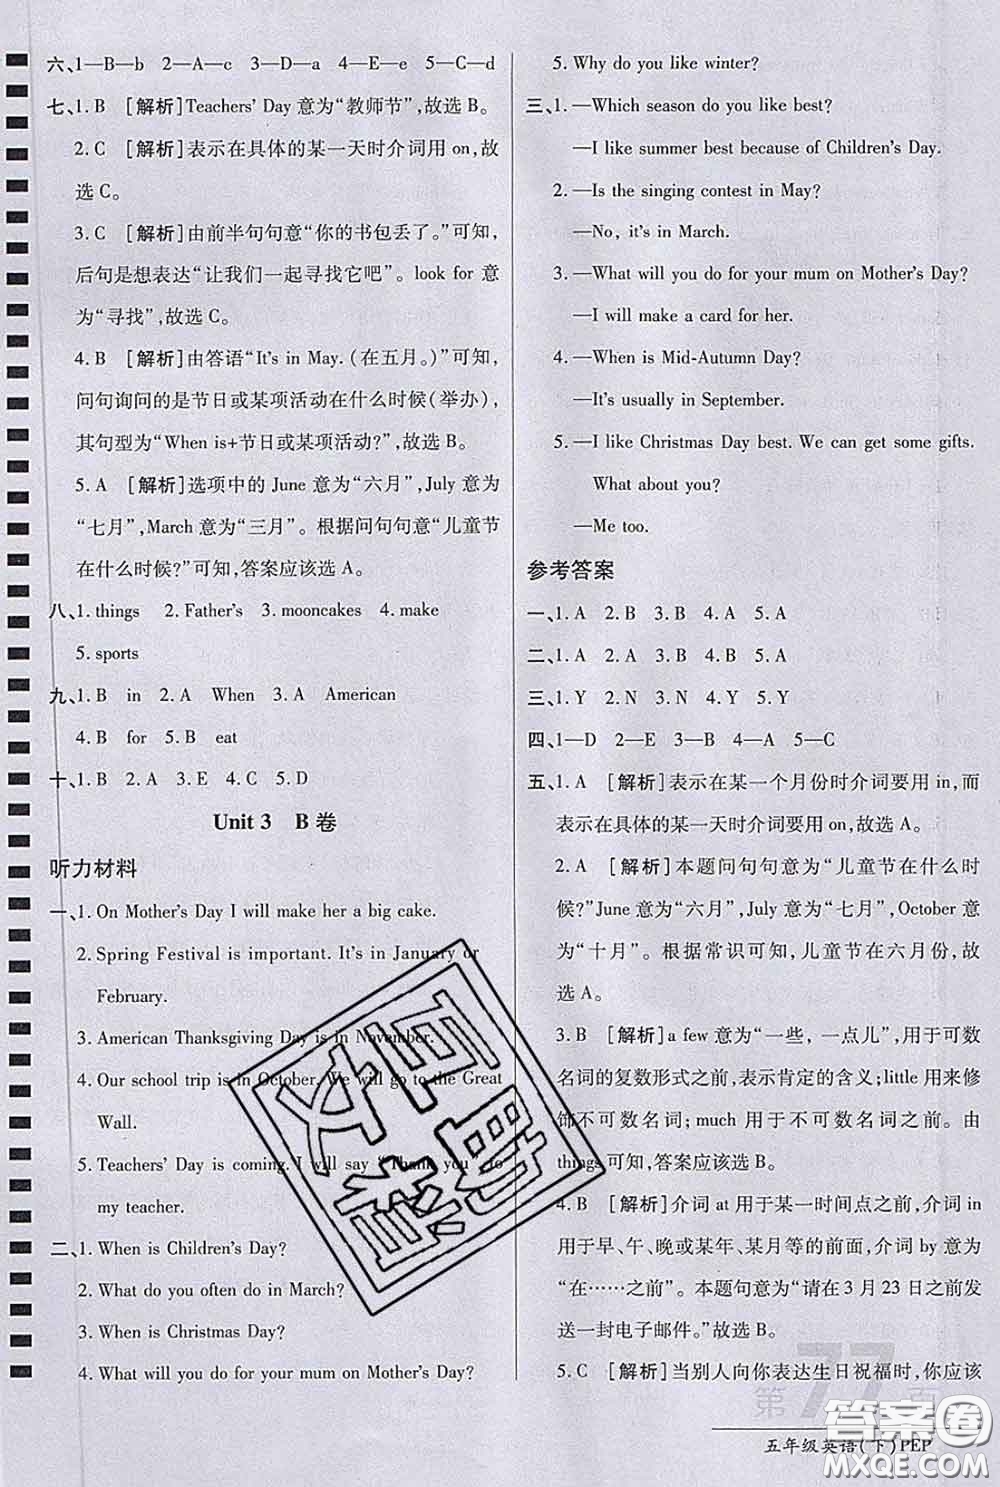 六、1—B—b　2—A—c　3—D—a　4—E—e　5—C—d
七、1. B　[解析]Teachers' Day 意为“教师节”,故选 B。
2. C　[解析]表示在具体的某一天时介词用 on,故
选 C。
3. C　[解析]由前半句句意“你的书包丢了。”可知,
后句是想表达“让我们一起寻找它吧”。look for 意
为“寻找”,故选 C。
4. B　[解析]由答语“It's in May. (在五月。)”可知,
问句询问的是节日或某项活动在什么时候(举办),
其句型为“When is+节日或某项活动?”,故选 B。
5. A　[解析]选项中的 June 意为“六月”,July 意为
“七月”,March 意为“三月”。根据问句句意“儿童节
在什么时候?”可知,答案应该选 A。
八、1. things　2. Father's　3. mooncakes　4. make
5. sports
九、1. B　in　2. A　When　3. A　American
4. B　for　5. B　eat
十、1. B　2. A　3. E　4. C　5. D
Unit 3　B 卷
听力材料
一、1. On Mother's Day I will make her a big cake.
2. Spring Festival is important. It's in January or
February.
3. American Thanksgiving Day is in November.
4. Our school trip is in October. We will go to the Great
Wall.
5. Teachers' Day is coming. I will say “Thank you” to
my teacher.
二、1. When is Children's Day?
2. What do you often do in March?
3. When is Christmas Day?
4. What will you do for your mum on Mother's Day?
5. Why do you like winter?
三、1. —Which season do you like best?
—I like summer best because of Children's Day.
2. —Is the singing contest in May?
—No, it's in March.
3. —What will you do for your mum on Mother's Day?
—I will make a card for her.
4. —When is Mid-Autumn Day?
—It's usually in September.
5. —I like Christmas Day best. We can get some gifts.
What about you?
—Me too.
参考答案
一、1. A　2. B　3. B　4. A　5. A
二、1. A　2. A　3. A　4. B　5. A
三、1. Y　2. N　3. N　4. Y　5. Y
四、1—D　2—E　3—B　4—A　5—C
五、1. A　[解析]表示在某一个月份时介词要用 in,而
表示在具体的某一天时介词要用 on,故选 A。
2. A　[解析]本题问句句意为“儿童节在什么时
候?”June 意为“六月”,July 意为“七月”,October 意
为“十月”。根据常识可知,儿童节在六月份,故
选 A。
3. B　[解析]a few 意为“一些，一点儿”,用于可数
名词的复数形式之前,表示肯定的含义;little 用来修
饰不可数名词;much 用于不可数名词之前。由
things 可知,答案应该选 B。
4. B　[解析]介词 at 用于某一时间点之前,介词 in
用于早、午、晚或某年、某月等的前面,介词 by 意为
“在……之前”。本题句意为“请在 3 月 23 日之前
发送一封电子邮件。”故选 B。
5. C　[解析]当别人向你表达生日祝福时,你应该
第 77 页
五年级英语(下)PEP
答案圈
MXQE.COM